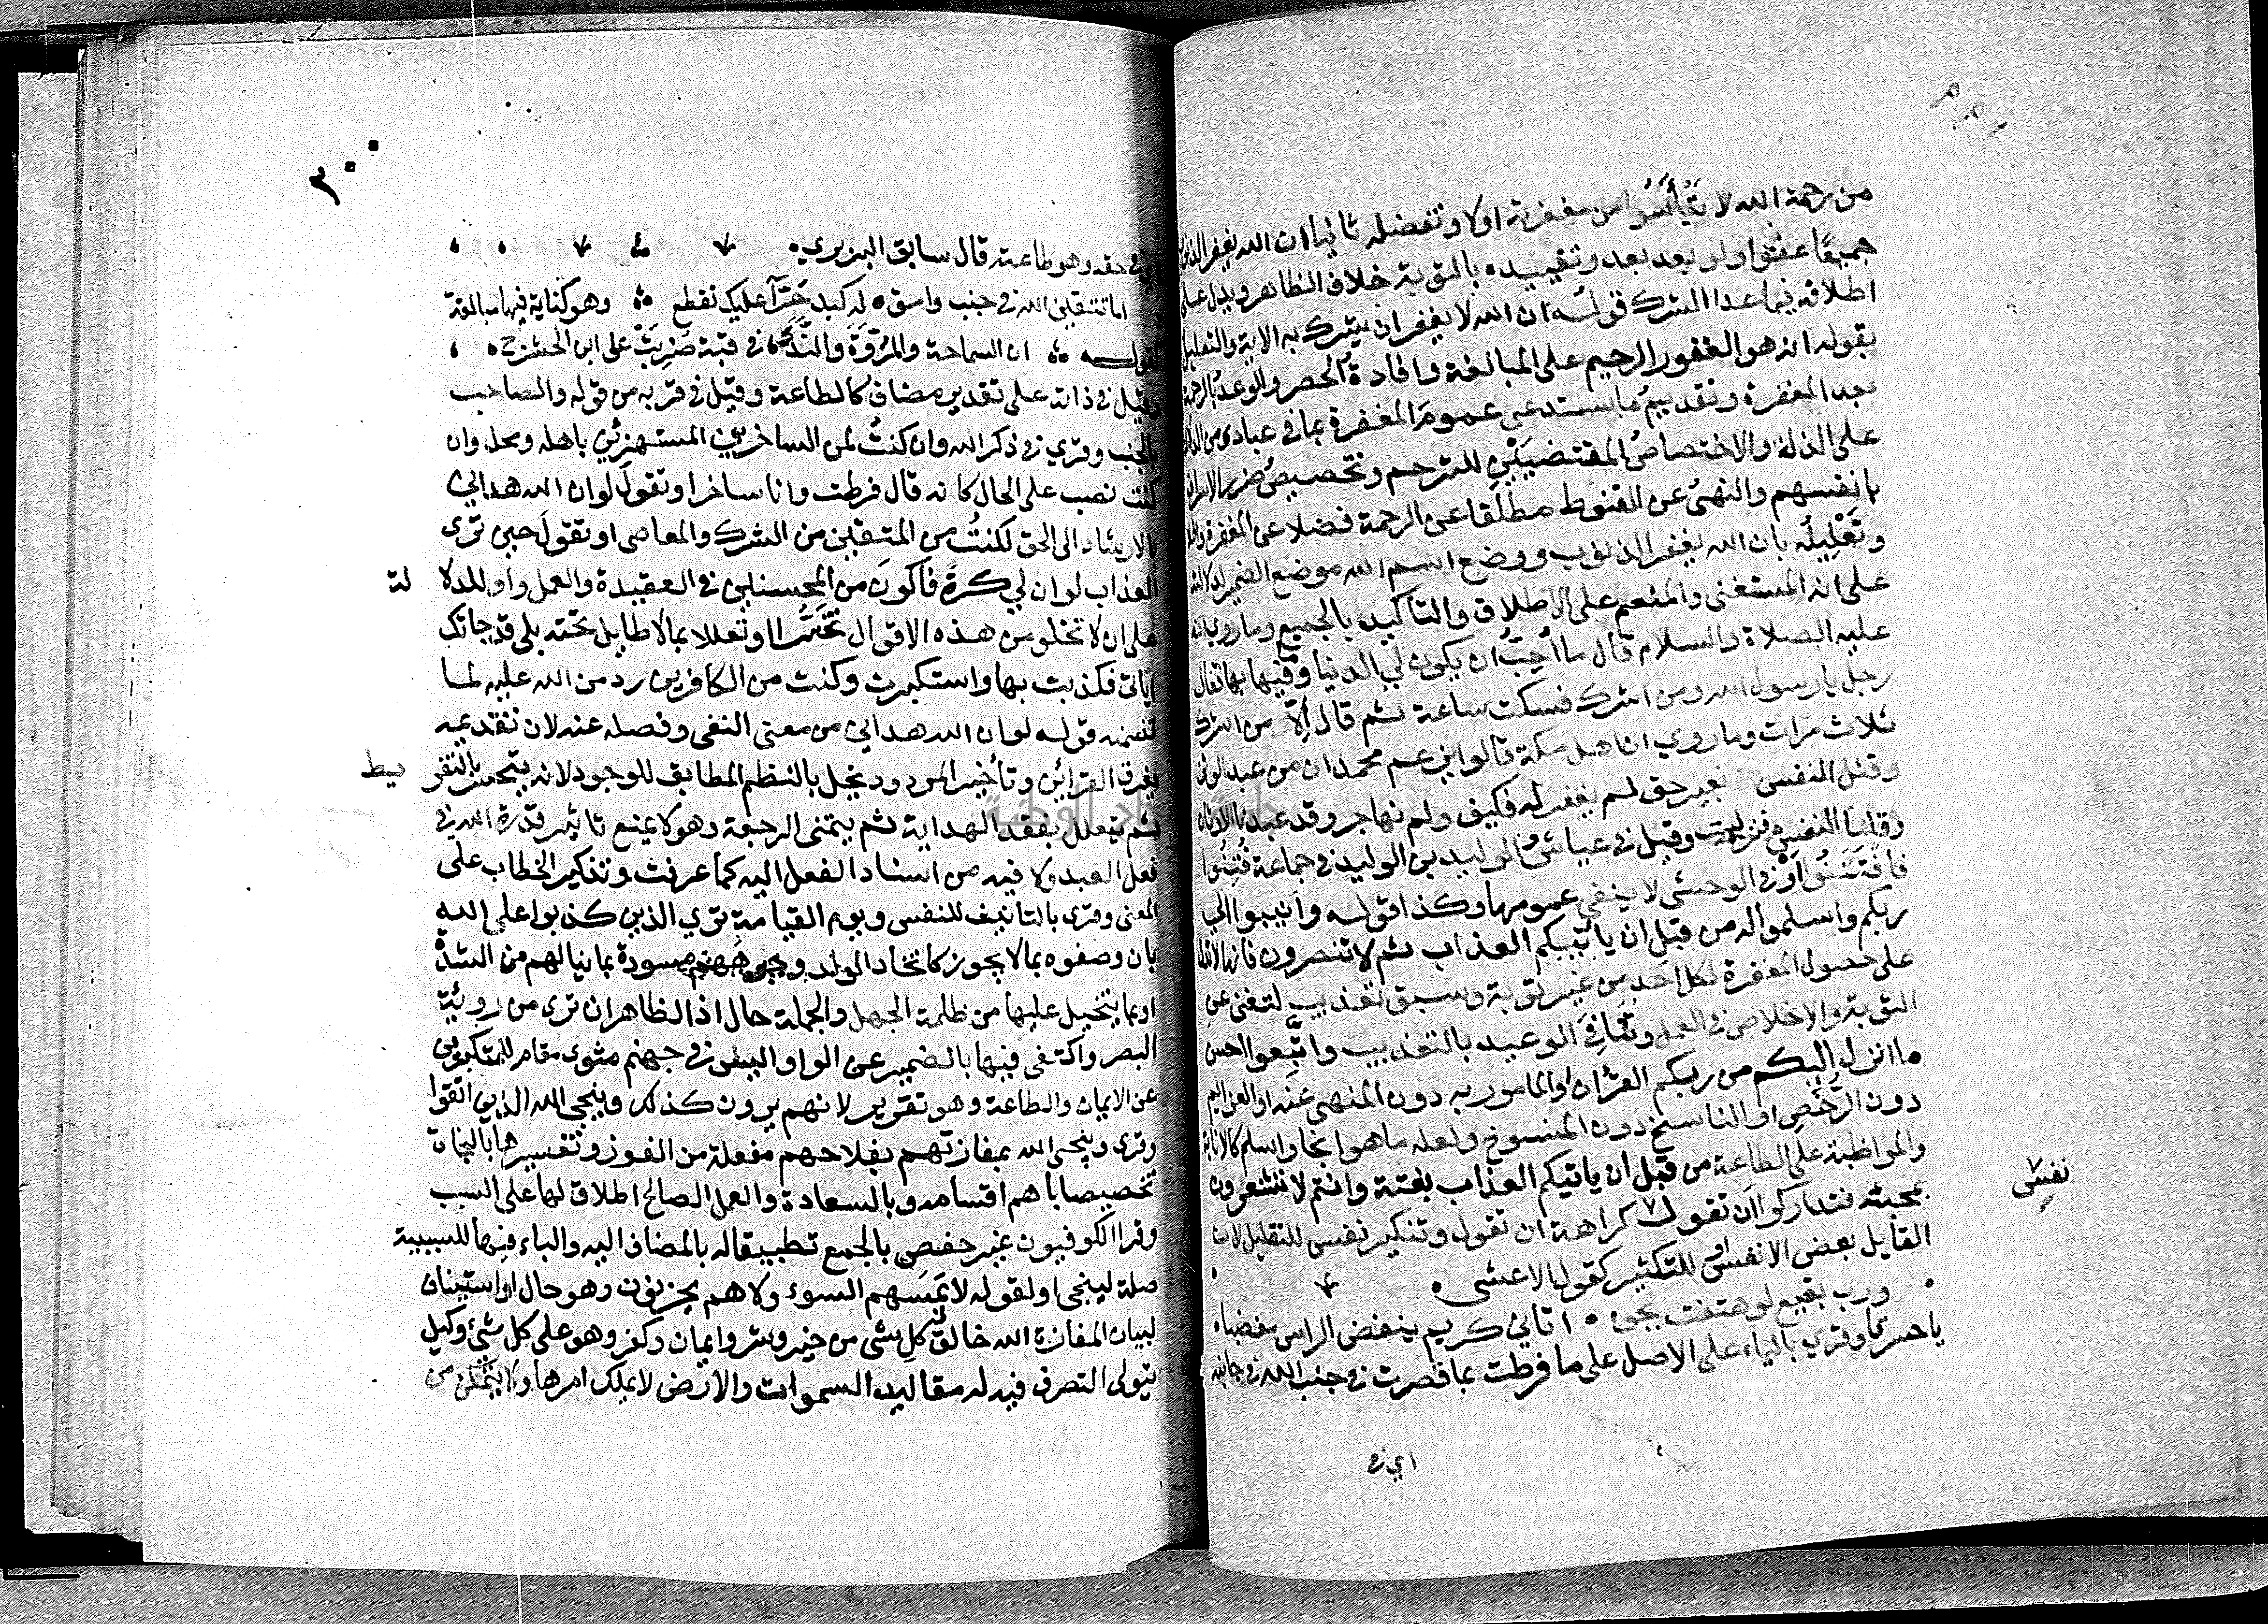 من رحمة الله لا تَيْأَسُوا من مغفرته اولا وتفضله ثانيا ان الله يغفر الذنوب
جميعًا عفوا ولو بعد بعد وتقييده بالتوبة خلاف الظاهر ويدل على
اطلاقه فيما عدا الشرك قوله ان الله لا يغفر ان يشرك به الاية والتعليل
بقوله انه هو الغفور الرحيم على المبالغة وافادة الحصر والوعد بالرحمة
بعد المغفرة وتقديم ما يستدعى عموم المغفرة بما في عبادى من الدلالة
على الذلة والاختصاص المقتضيَيْنِ للترحم وتخصيص ضرر الاسراف
بانفسهم والنهى عن القنوط مطلقا عن الرحمة فضلا عن المغفرة واطلا
وتَعْلِيلُه بان الله يغفر الذنوب ووضع اسم الله موضع الضمير لدلالته
على انه المستغنى والمنعم على الاطلاق والتأكيد بالجميع وما روي انه
عليه الصلاة والسلام قال ما أُحِبُّ ان يكون لي الدنيا وفيها بها فقال
رجل يا رسول الله ومن اشرك فسكت ساعة ثم قال إلَّا من اشرك
ثلاث مرات وما روي ان اهل مكة قالوا يزعم محمد ان من عبد الوثن
وقتل النفس بغير حق لم يغفر له فكيف ولم نهاجر وقد عبدنا الاوثان
وقتلنا النفس فنزلت وقيل في عياش والوليد بن الوليد في جماعة فُتِنُوا
فَافْتَتَنُوا أوْ في الوحشى لا ينفى عمومها وكذا قوله وانيبوا الى
ربكم واسلموا له من قبل ان ياتيكم العذاب ثم لا تنصرون فانها لا تدل
على حصول المغفرة لكل احد من غير توبة وسبق تعذيب لتغنى عن
التوبة والاخلاص في العمل وتنافي الوعيد بالتعذيب واتَّبعوا احسن
ما انزل اليكم من ربكم القرآن او المامور به دون المنهى عنه او العزايم
دون الرُّخَصِ او الناسخ دون المنسوخ ولعله ما هو انجا واسلم كالانابة
والمواظبة على الطاعة من قبل ان ياتيكم العذاب بغتة وانتم لا تشعرون
بمجيئه فتداركوا ان تقول كراهة ان تقول وتنكير نفس للتقليل لان
نفس
القايل بعض الانفس او للتكثير كقول الاعشى
ورب بقيع لو هتفت بجوه اتاني كريم ينغض الراس مغضبا
يا حسرتا وقري بالياء على الاصل على ما فرطت بما قصرت في جنب الله في جانبه
اي في
٣٠٠
اي في حقه وهو طاعته قال سابق البربري
اما تتقين الله في جنب وامق له كبد حَرَّا عليك تقطع وهو كناية فيها مبالغة
كقوله ان السماحة والمُرُوَّةَ والنَّدَى في قبة ضُرِبَتْ على ابن الحشرج
وقيل في ذاته على تقدير مضاف كالطاعة وقيل في قربه من قوله والصاحب
بالجنب وقري في ذكر الله وان كنتُ لمن الساخرين المستهزئين باهله ومحل وان
كنت نصب على الحال كانه قال فرطت وانا ساخر او تقول لو ان الله هداني
بالارشاد الى الحق لكنتُ من المتقين من الشرك والمعاصى او تقول حين ترى
العذاب لو ان لي كرة فاكون من المحسنين في العقيدة والعمل واو للدلا لة
على ان لا تخلو من هذه الاقوال تَحَسُّرًا وتعللا بما لا طايل تحته بلى قد جاتك
اياتى فكذبت بها واستكبرت وكنت من الكافرين رد من الله عليه لما
تضمنه قوله لو ان الله هداني من معنى النفى وفصله عنه لان تقديمه
يفرق القرائن وتأخير المردود يخل بالنظم المطابق للوجود لانه يتحسر بالتفر يط
ثم يتعلل بفقد الهداية ثم يتمنى الرجعة وهو لا يمنع تاثير قدرة الله في
فعل العبد ولا فيه من اسناد الفعل اليه كما عرفت وتذكير الخطاب على
المعنى وقرى بالتانيث للنفس ويوم القيامة تري الذين كذبوا على الله
بان وصفوه بما لا يجوز كاتخاد الولد وجوههم مسودة بما ينالهم من الشدة
او بما يتخيل عليها من ظلمة الجهل والجملة حال اذ الظاهر ان ترى من روئية
البصر واكتفى فيها بالضمير عن الواو اليس في جهنم مثوى مقام للمتكبرين
عن الايمان والطاعة وهو تقرير لانهم يرون كذلك وينجي الله الذين اتقوا
وقرى وينجى الله بمفازتهم بفلاحهم مفعلة من الفوز وتفسيرها بالنجاة
تخصيصا باهم اقسامه وبالسعادة والعمل الصالح اطلاق لها على السبب
وقرا الكوفيون غير حفص بالجمع تطبيقا له بالمضاف اليه والباء فيها للسببية
صلة لينجى او لقوله لا يَمَسهم السوء ولا هم يحزنون وهو حال او استيناف
لبيان المفازة الله خالق كل شى من خير وشر وايمان وكفر وهو على كل شئ وكيل
يتولى التصرف فيه له مقاليد السموات والارض لا يملك امرها ولا يتمكن من